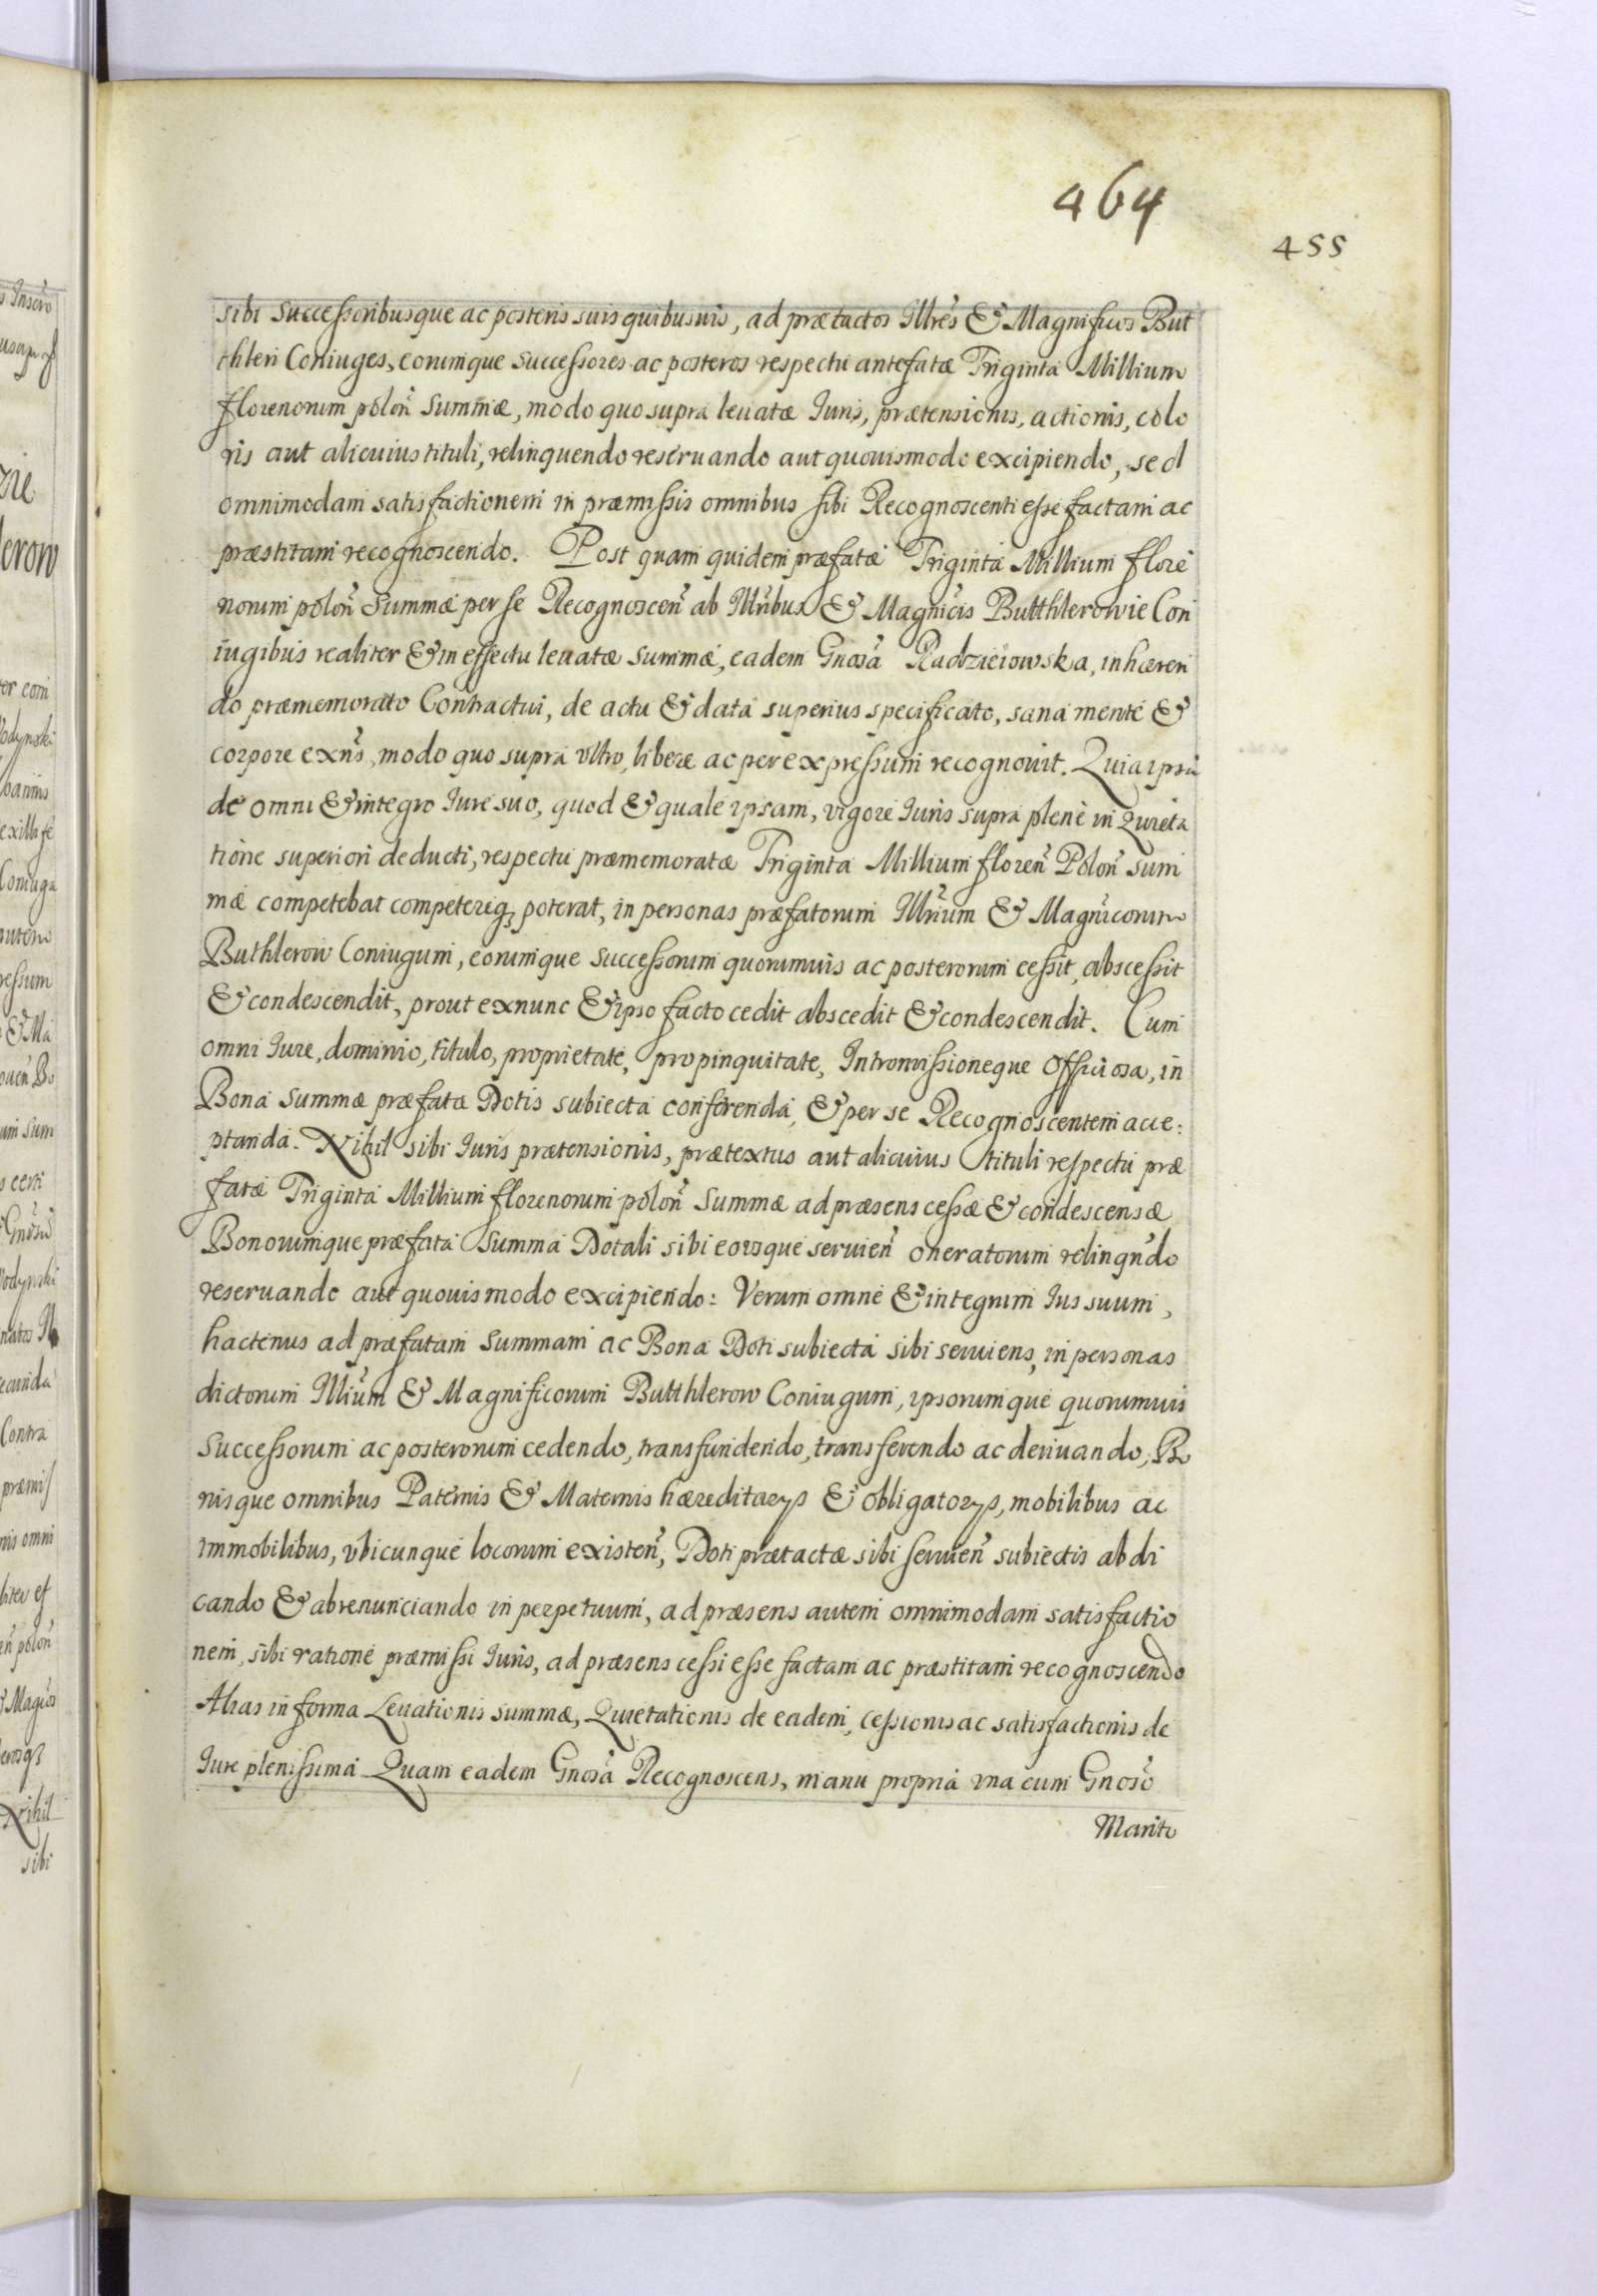 464
455
sibi Successoribusque ac posteris suis quibusuis, ad prætactos Illres̃ & Magnificos But
thleri Coniuges, eorumque successores ac posteros respectu antefatæ Triginta Millium
florenorum polon̄ Summæ, modo quo supra leuatæ Iuris, prætensionis, actionis, colo
ris aut alicuius tituli, relinquendo reseruando aut quouismodo excipiendo, sed
omnimodam satisfactionem in præmissis omnibus sibi Recognoscenti esse factam ac
præstitam recognoscendo. Post quam quidem præfatæ Triginta Millium flore
norum polon̄ Summæ per se Recognoscen̄ ab Illribus & Magnicis Butthlerowie Con
iugibus realiter & in effectu leuatæ summæ, eadem Gnosa Radzieiowska, inhæren
do præmemorato Contractui, de actu & data superius specificato, sana mente &
corpore exñs, modo quo supra vltro, libere ac per expressum recognouit. Quia ipsa
de omni & integro Iure suo, quod & quale ipsam, vigore Iuris supra plene in Quieta
tione superiori deducti, respectu præmemoratæ Triginta Millium floren̄ Polon̄ sum
mæ competebat competereq₃ poterat, in personas præfatorum Illrium & Magnicorum
Buthlerow Coniugum, eorumque Successorum quorumuis ac posterorum cessit, abscessit
& condescendit, prout exnunc & ipso facto cedit abscedit & condescendit. Cum
omni Iure, dominio, titulo, proprietate, propinquitate, Intromissioneque officiosa, in
Bona Summæ præfatæ Dotis subiecta conferenda, & per se Recognoscentem acce:
ptanda. Nihil sibi Iuris prætensionis, prætextus aut alicuius tituli respectu præ
fatæ Triginta Millium florenorum polon̄ Summæ ad præsens cessæ & condescensæ
Bonorumque præfata Summa Dotali sibi eousque seruien̄ oneratorum relinqn̄do
reseruando aut quouis modo excipiendo: Verum omne & integrum Ius suum,
hactenus ad præfatam Summam ac Bona Doti subiecta sibi seruiens, in personas
dictorum Illrium & Magnificorum Butthlerow Coniugum, ipsorumque quorumuis
Successorum ac posterorum cedendo, transfundendo, transferendo ac deriuando, Bo
nisque omnibus Paternis & Maternis hæreditarys & obligatorys, mobilibus ac
immobilibus, vbicunque locorum existen̄, Doti prætactæ sibi seruien̄ subiectis abdi
cando & abrenunciando in perpetuum, ad præsens autem omnimodam satisfactio
nem, sibi ratione præmissi Iuris, ad præsens cessi esse factam ac præstitam recognoscendo
Alias in forma Leuationis summæ, Quietationis de eadem, cessionis ac satisfactionis de
Iure plenissima Quam eadem Gnosa Recognoscens, manu propria vna cum Gnoso
Marito